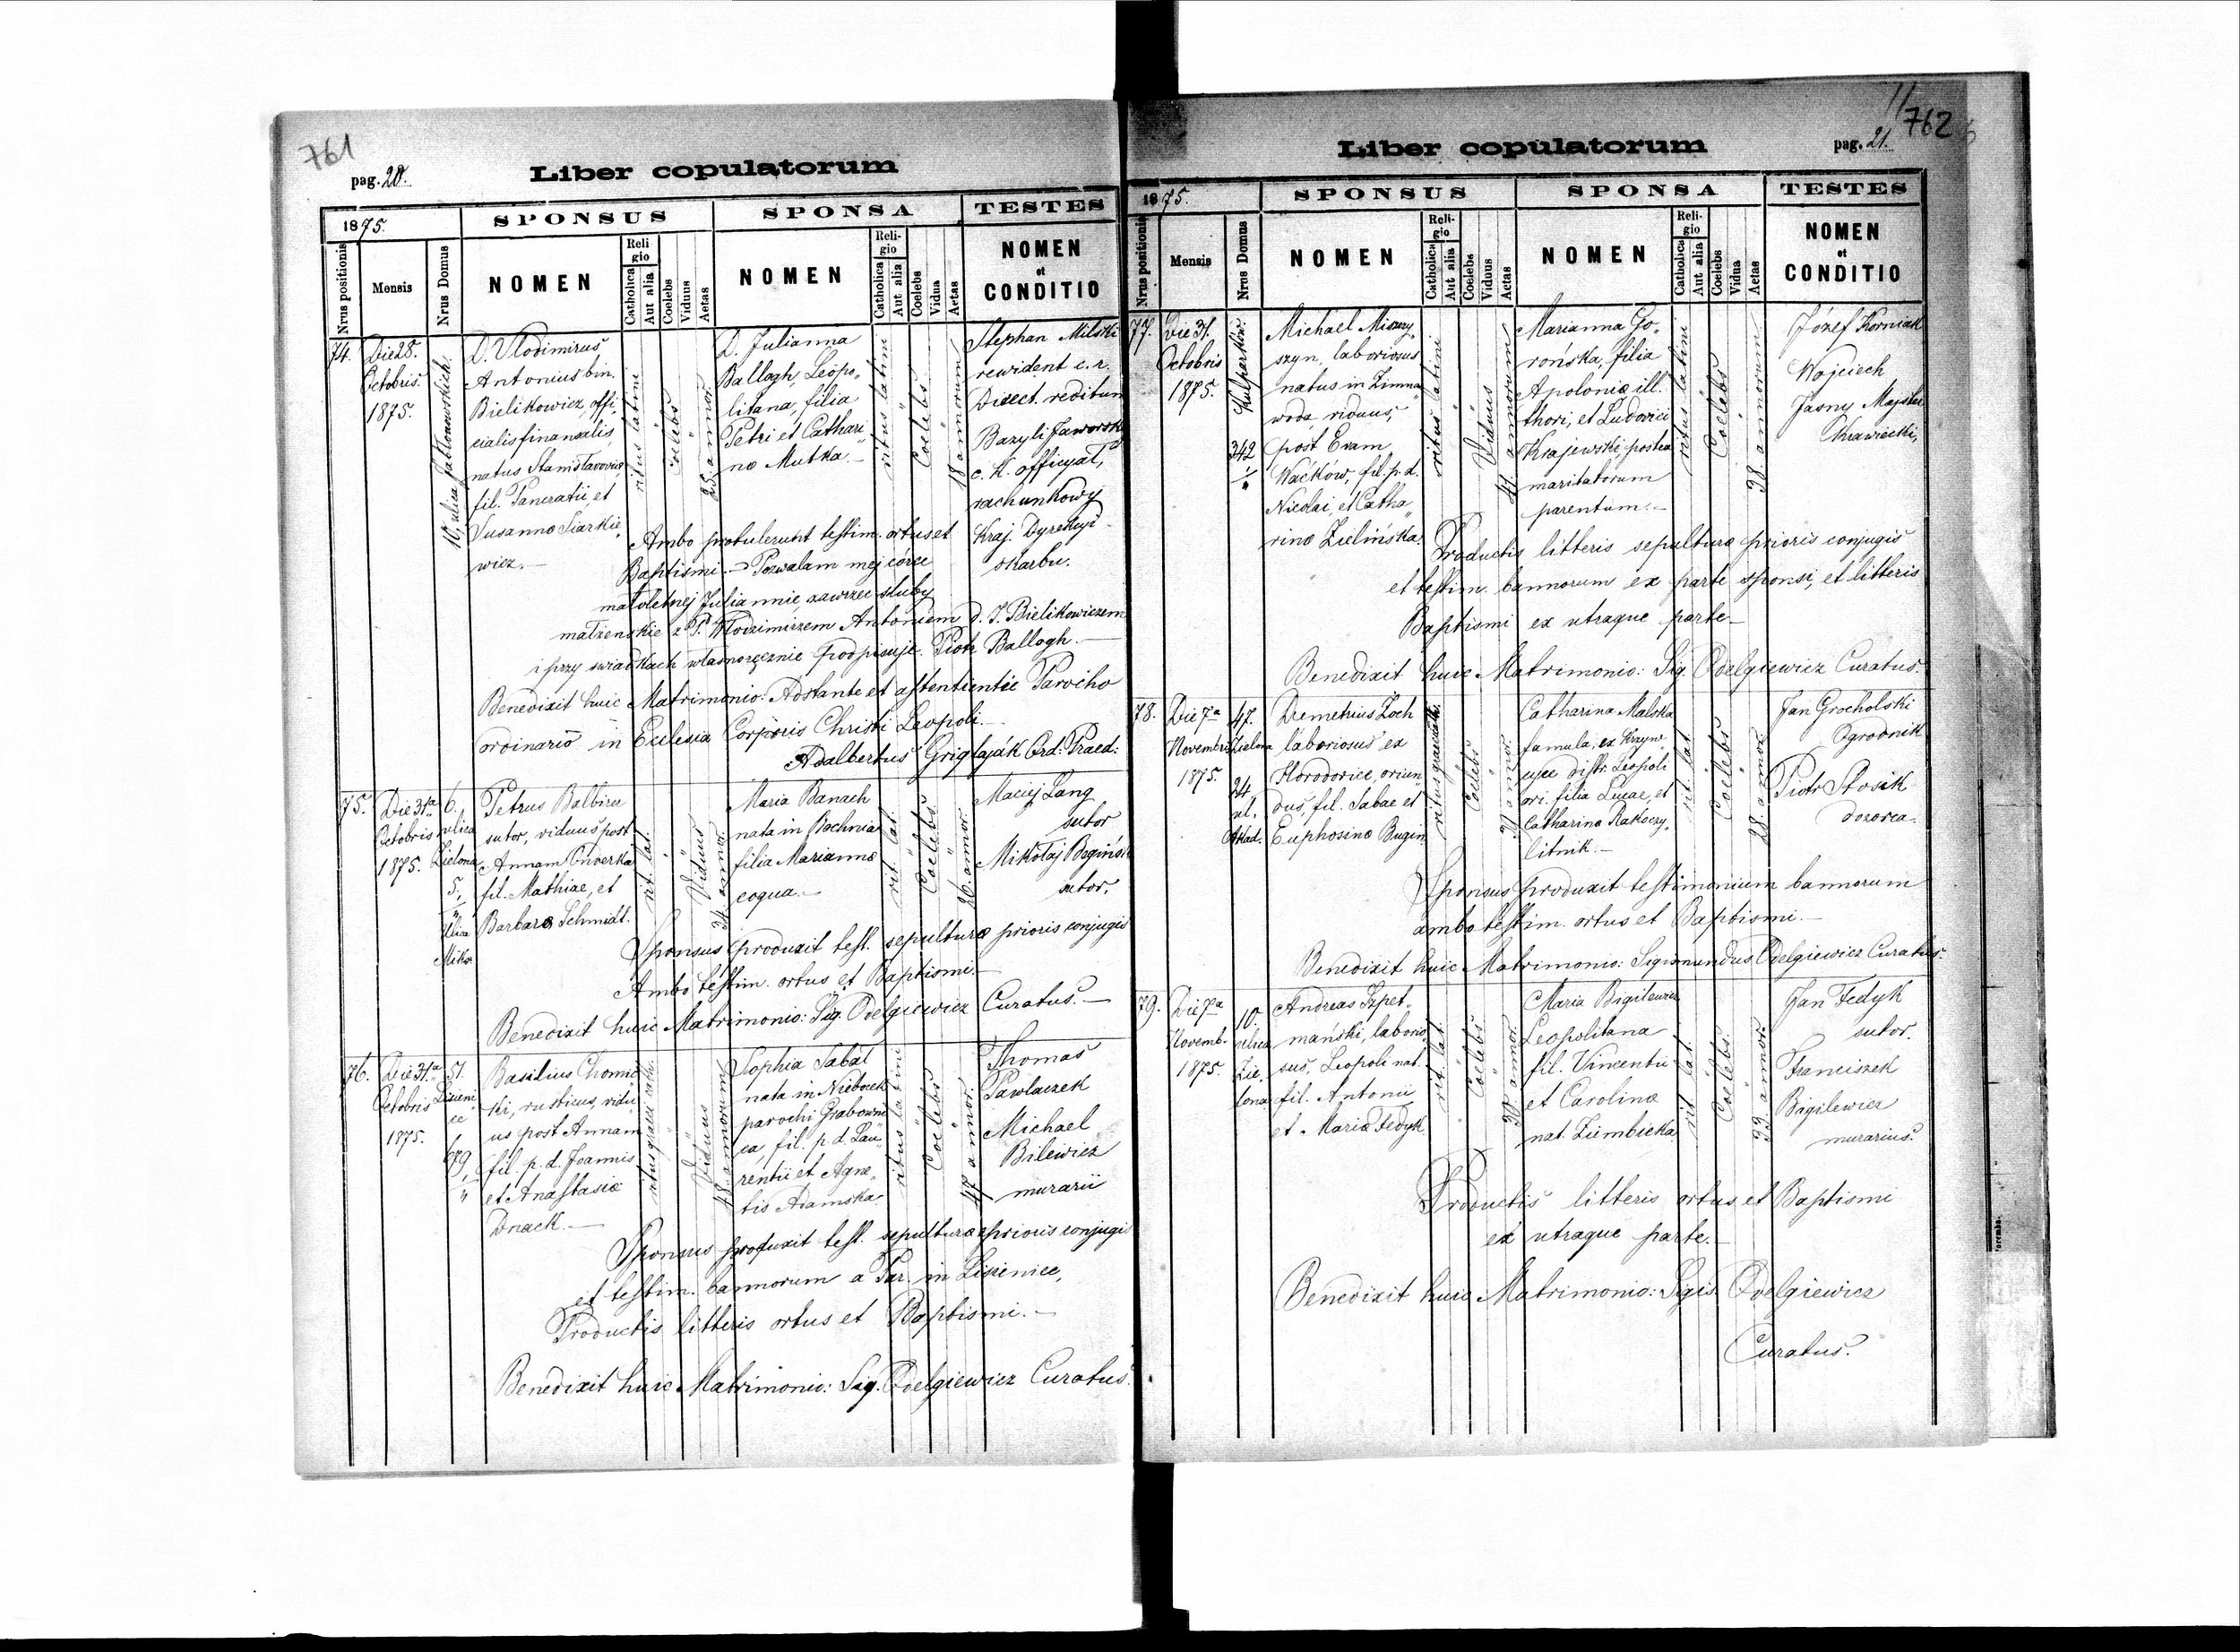 761
pag. 20.
Liber copulatorum
1875.
SPONSUS
SPONSA
TESTES
Nrus positionis
Mensis
Nrus Domus
NOMEN
Reli
gio
Catholica
Aut alia
Coelebs
Viduus
Aetas
NOMEN
Reli-
gio
Catholica
Aut alia
Coelebs
Vidua
Aetas
NOMEN
et
CONDITIO
74.
Die 28.
Octobris.
1875.
10, ulica Jabłonowskich.
D. Vlodimirus
Antonius bin.
Bielikowicz, offi„
cialis finansialis
natus Stanislavoviæ,
fil. Pancratii, et
Susannæ Siarkie„
wicz.—
ritus latini
Coelebs
25 annor.
D. Julianna
Ballagh, Leopo„
litana, filia
Petri et Cathari„
næ Mutka.—
ritus latini
Coelebs
18 annorum
Stephan Milski
rewident c. r.
Direct. redituum
Bazyli Jaworski
c. k. officyał,
rachunkowy
Kraj. Dyrekcyi
skarbu.
Ambo protulerunt testim. ortus et
Baptismi.— Pozwalam mej córce
małoletnej Juliannie zawrzeć śluby
małżenskie z P. Włodzimirzem Antoniem d. I. Bielikowiczem
i przy swiadkach własnoręcznie podpisuje. Piotr Ballagh.—
Benedixit huic Matrimonio: Adstante et assentiente Parocho
ordinario in Eclesia Corporis Christi Leopoli.—
Adalbertus Griglaják Ord: Praed:
75.
Die 31a
Octobris
1875.
6.,
ulica
Zielona
5.,
ulica
Miko.
Petrus Balbira
sutor, viduus post
Annam
fil. Mathiae, et
Barbaræ Schmidt.
rit. lat.
Viduus
34 annor.
Maria Banach
nata in Bochnia
filia Mariannæ
coqua.—
rit. lat.
Coelebs.
26. annor.
Maciej Lang
sutor
Mikołaj Begiński
sutor.
Sponsus produxit test. sepulturæ prioris conjugis
Ambo testim. ortus et Baptismi.—
Benedixit huic Matrimonio: Sig. Odelgiewicz Curatus.—
76.
Die 31a
Octobris
1875.
51.
Lisieni
ce
679,
Basilius Chomic
ki, rusticus, vidu
us post Annam
fil. p. d. Joannis
et Anastasiæ
Dnack.—
ritus græci cath.
Viduus
48 annorum
Sophia Sabat
nata in Niebocek
parochi Grabowni
ca, fil. p. d. Lau„
rentii et Agne„
tis Adamska.
ritus latini
Coelebs
47 annor.
Thomas
Pawlaczek
Michael
Bilewicz
murarii
Sponsus produxit test. sepulturæ prioris conjugis
et testim. bannorum a Par. in Lisienice,
Productis litteris ortus et Baptismi.—
Benedixit huic Matrimonio: Sig. Odelgiewicz Curatus.
762
pag. 21.
Liber copulatorum
1875.
SPONSUS
SPONSA
TESTES
Nrus positionis
Mensis
Nrus Domus
NOMEN
Reli-
gio
Catholica
Aut alia
Coelebs
Viduus
Aetas
NOMEN
Reli-
gio
Catholica
Aut alia
Coelebs
Vidua
Aetas
NOMEN
et
CONDITIO
77.
Die 31.
Octobris
1875.
Kulparków.
342
Michael Miszny„
szyn, laboriosus
natus in Zimna
woda, viduus,
post Evam
Waćków, fil. p. d.
Nicolai, et Catha„
rinæ Zielińska.
ritus latini
Viduus
41 annorum
Marianna Go„
rońska, filia
Apoloniæ ill.
thori, et Ludovici
Krajewski, postea
maritatorum
parentum.—
ritus latini
Coelebs
38 annorum
Józef Korniak
Wojciech
Jasny Majster
Krawiecki,
Productis litteris sepulturæ prioris conjugis
et testim. bannorum ex parte sponsi, et litteris
Baptismi ex utraque parte—
Benedixit huic Matrimonio: Sig. Odelgiewicz Curatus.
78.
Die 7a
Novembris
1875.
47.
Zielona
24
ul.
Demetrius Zoch
laboriosus ex
Horodovice, oriun
dus, fil. Sabae et
Euphosinæ Bugin
Coelebs
Catharina Malska
famula, ex Krzyw„
czyce distr. Leopoli
ori. filia Lucae, et
Catharinæ Rakoczy„
litnik.—
rit. lat.
Coelebs
28. annor.
Jan Grocholski
Ogrodnik
Piotr Stosik
dozorca.
Sponsus produxit testimonium bannorum
ambo testim. ortus et Baptismi.—
Benedixit huic Matrimonio: Sigismundus Odelgiewicz Curatus.
79.
Die 7a
Novemb.
1875.
10.
ulica
Zie„
lona
Andreas Szpet„
mański, laborio„
sus, Leopoli nat.
fil. Antonii
et Mariæ Fedyk.
rit. lat.
Coelebs
30 annor.
Maria Bigilewicz
Leopolitana
fil. Vincentii
et Carolinæ
nat. Ziembicka
rit lat.
Coelebs.
33 annor.
Jan Fedyk
sutor.
Franciszek
Bigilewicz
murarius.
Productis litteris ortus et Baptismi
ex utraque parte.—
Benedixit huic Matrimonio: Sigis. Odelgiewicz
Curatus.